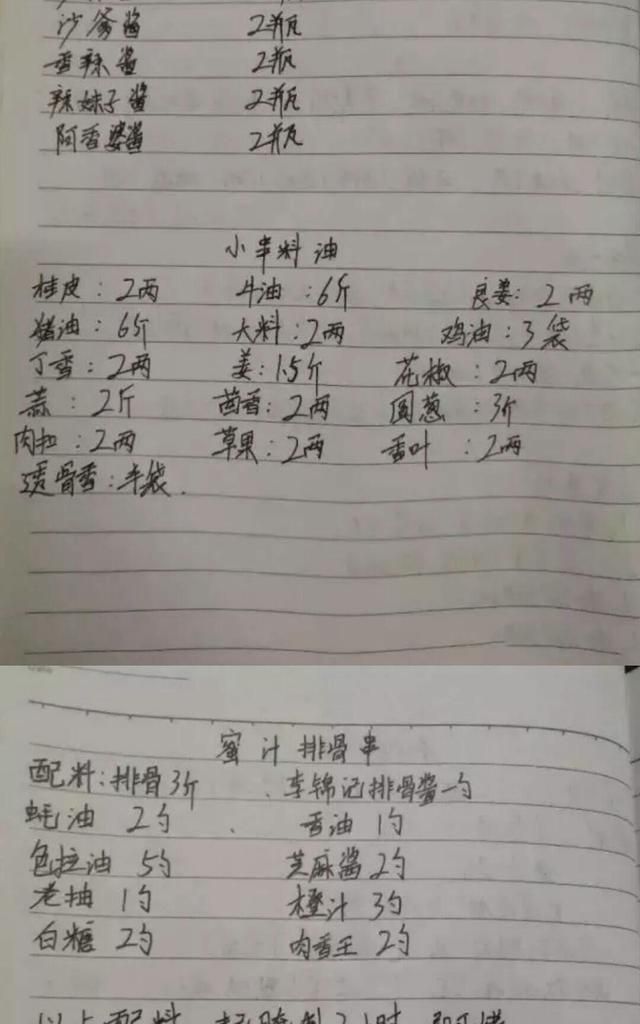 沙爹酱 2瓶
香辣酱 2瓶
辣妹子酱 2瓶
阿香婆酱 2瓶
小串料油
桂皮：2两 牛油：6斤 良姜：2两
猪油：6斤 大料：2两 鸡油：3袋
丁香：2两 姜：1.5斤 花椒：2两
蒜：2斤 茴香：2两 圆葱：3斤
肉扣：2两 草果：2两 香叶：2两
透骨香：半袋.
蜜汁排骨串
配料：排骨3斤 、李锦记排骨酱一勺
蚝油 2勺 、 香油 1勺
色拉油 5勺 芝麻酱 2勺
老抽 1勺 橙汁 3勺
白糖 2勺 肉香王 2勺
以上配料